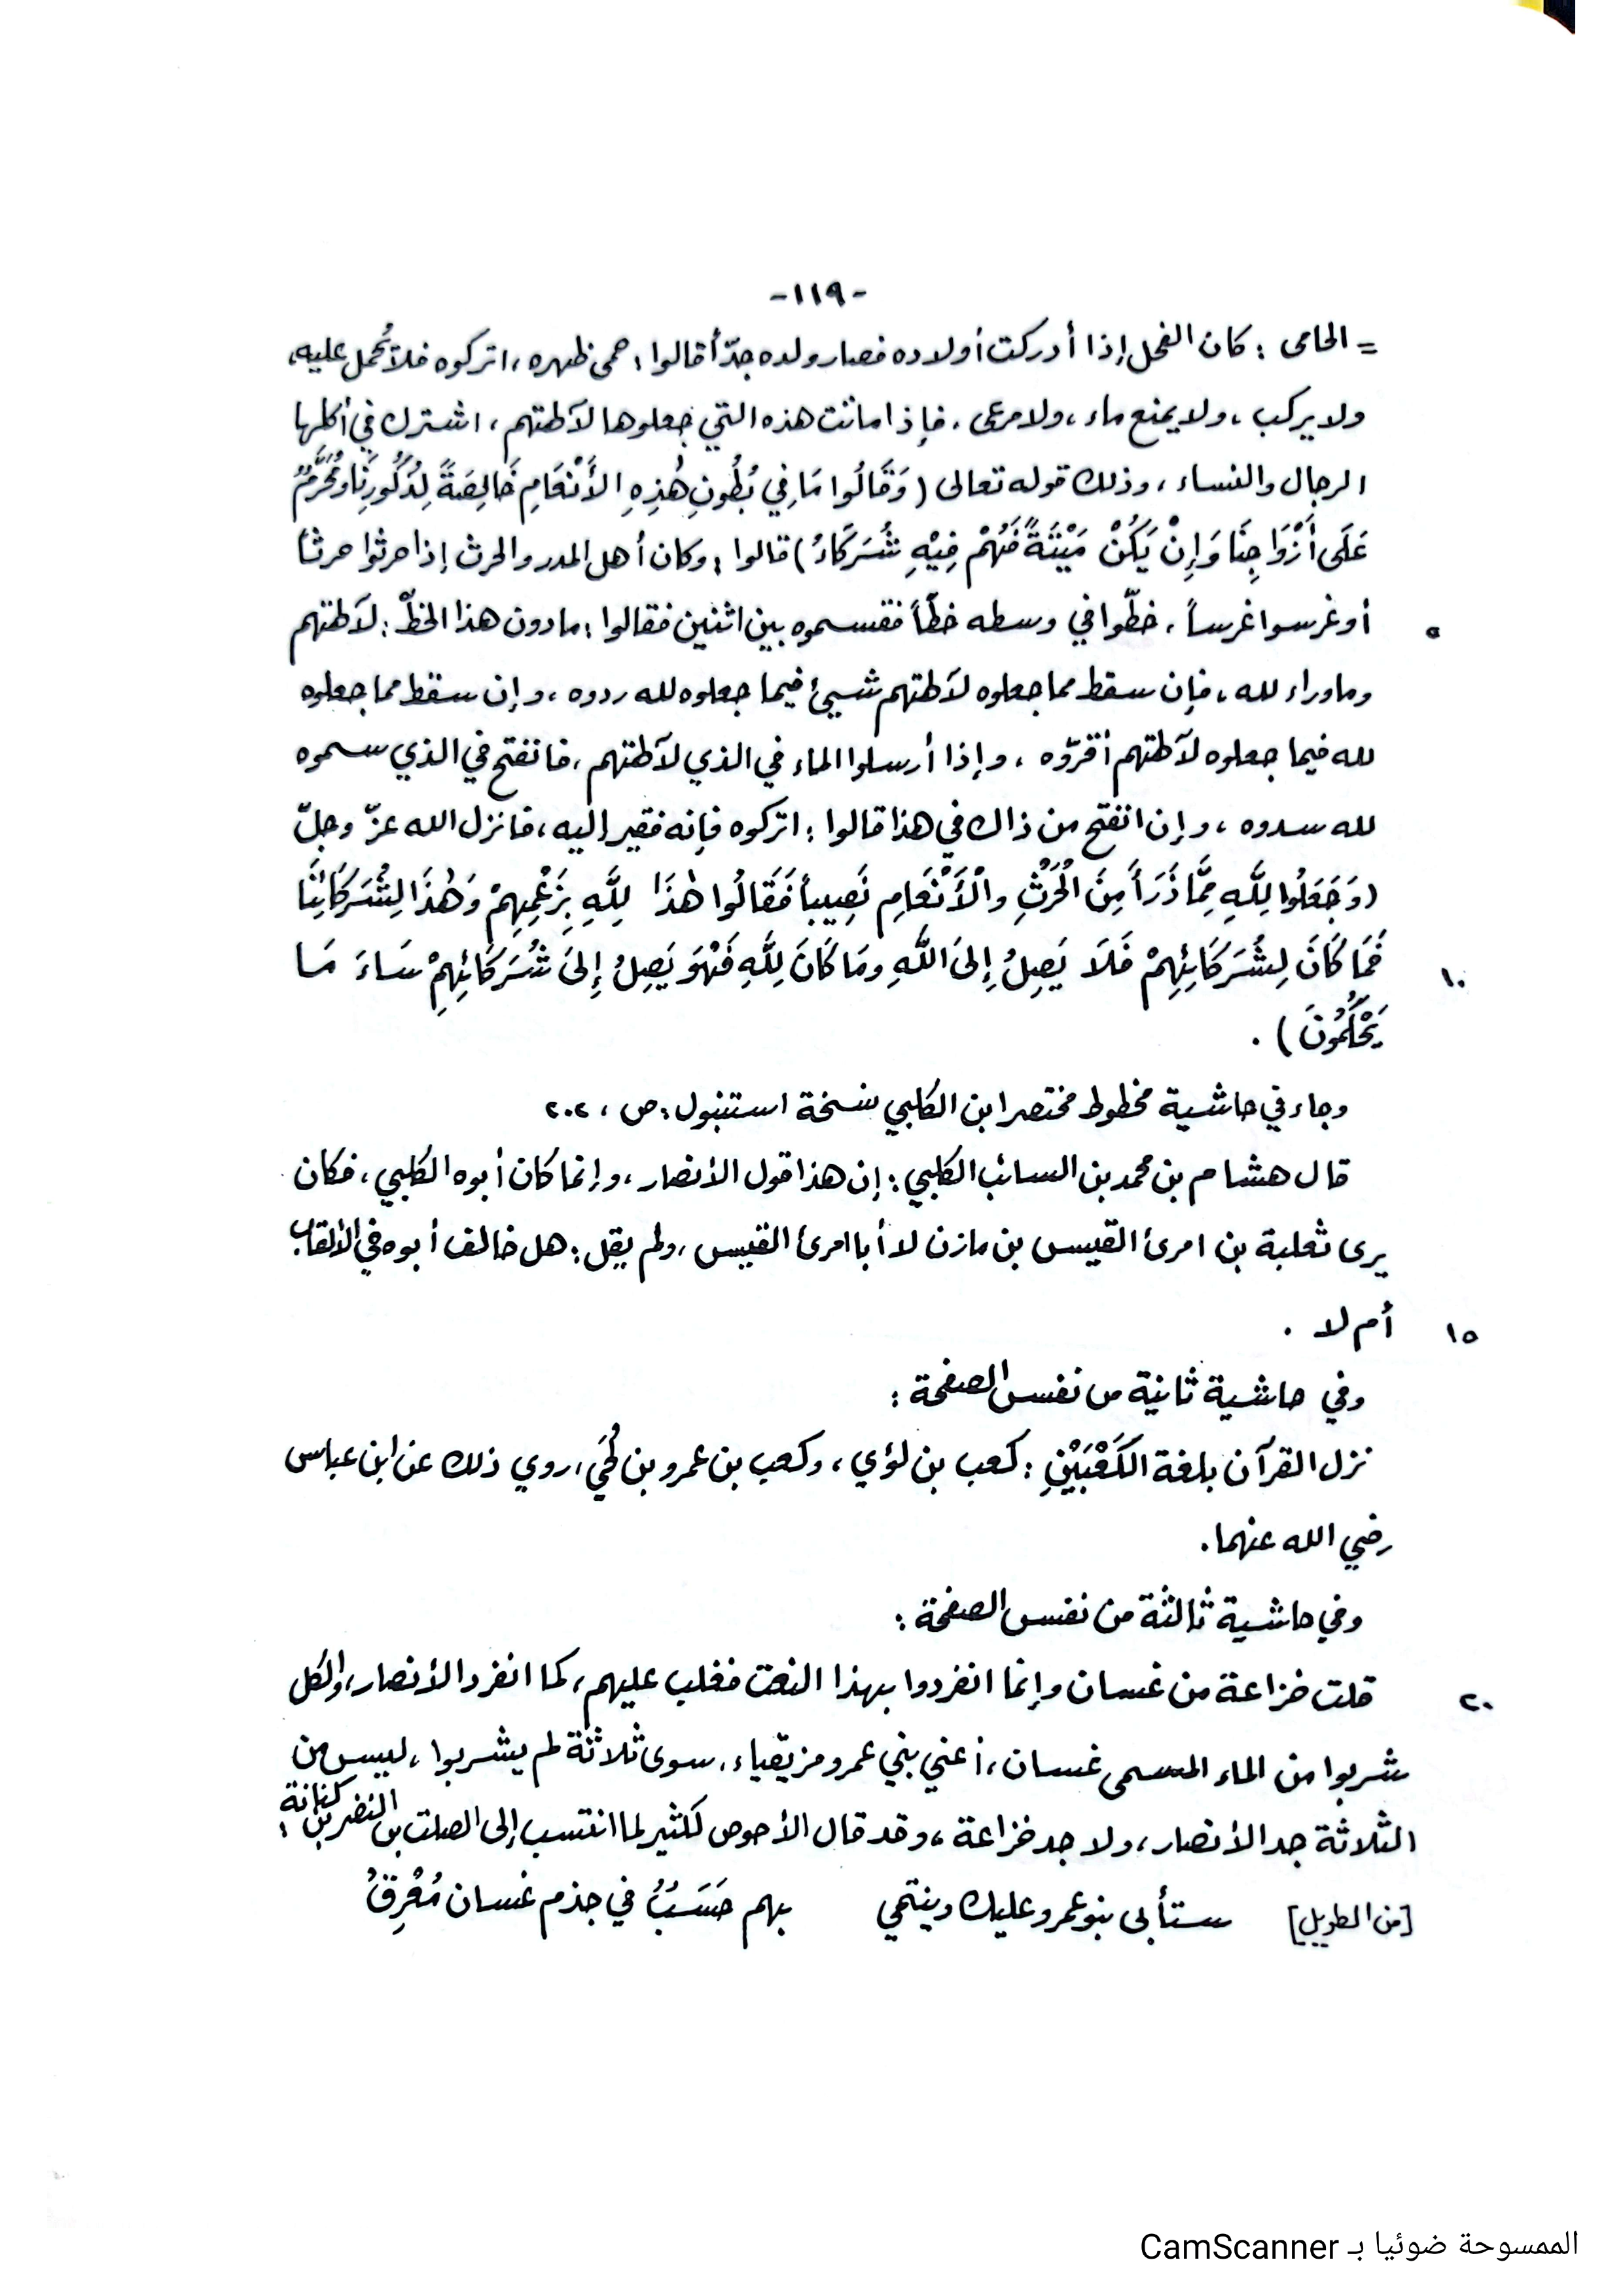 -١١٩-
= الحامى : كان الفحل إذا أدركت أولاده فصار ولده جدّاً قالوا : حمى ظهره ، اتركوه فلا تُحمل عليه،
ولا يركب ، ولا يمنع ماء ، ولا مرعى ، فإذا ماتت هذه التي جعلوها لآلهتهم ، اشترك في أكلها
الرجال والنساء ، وذلك قوله تعالى ( وَقَالُوا مَا فِي بُطُونِ هٰذِهِ الأَنْعَامِ خَالِصَةً لِذُكُورِنَا وَمُحَرَّمٌ
عَلَى أَزْوَاجِنَا وَإِنْ يَكُنْ مَيْتَةً فَهُمْ فِيْهِ شُرَكَاءُ ) قالوا : وكان أهل المدر والحرث إذا حرثوا حرثاً
أو غرسوا غرساً ، خطّوا في وسطه خطّاً فقسموه بين اثنين فقالوا : مادون هذا الخطّ : لآلهتهم ٥
وما وراء لله ، فإن سقط مما جعلوه لآلهتهم شيئ فيما جعلوه لله ردوه ، وإن سقط مما جعلوه
لله فيما جعلوه لآلهتهم أقرّوه ، وإذا أرسلوا الماء في الذي لآلهتهم ، فانفتح في الذي سموه
لله سدوه ، وإن انفتح من ذاك في هذا قالوا : اتركوه فإنه فقير إليه ، فانزل الله عزّ وجلّ
( وَجَعَلُوا لِلَّهِ مِمَّا ذَرَأَ مِنَ الْحَرْثِ والْأَنْعَامِ نَصِيباً فَقَالُوا هٰذَا لِلَّهِ بِزَعْمِهِمْ وَهٰذَا لِشُرَكَائِنَا
فَمَا كَانَ لِشُرَكَائِهِمْ فَلَا يَصِلُ إِلَى اللَّهِ ومَا كَانَ لِلَّهِ فَهْوَ يَصِلُ إِلَى شُرَكَائِهِمْ سَاءَ مَا ١٠
يَحْكُمُونَ ) .
وجاء في حاشية مخطوط مختصر ابن الكلبي نسخة استنبول : ص ، ٢٠٢
قال هشام بن محمد بن السائب الكلبي : إن هذا قول الأنصار ، وإنما كان أبوه الكلبي ، فكان
يرى ثعلبة بن امرئ القيس بن مازن لا أبا امرئ القيس ، ولم يقل : هل خالف أبوه في الألقاب
أم لا . ١٥
وفي حاشية ثانية من نفس الصفحة :
نزل القرآن بلغة الكَعْبَيْنِ : كعب بن لؤي ، وكعب بن عمرو بن لُحَي ، روي ذلك عن ابن عباس
رضي الله عنهما .
وفي حاشية ثالثة من نفس الصفحة :
قلت خزاعة من غسان وإنما انفردوا بهذا النعت فغلب عليهم ، كما انفرد الأنصار ، والكل ٢٠
شربوا من الماء المسمى غسان ، أعني بني عمرو مزيقياء ، سوى ثلاثة لم يشربوا ، ليس من
الثلاثة جد الأنصار ، ولا جد خزاعة ، وقد قال الأحوص لكثير لما انتسب إلى الصلت بن النضر بن كنانة :
[من الطويل] ستأبى بنو عمرو عليك وينتمي بهم حَسَبٌ في جذم غسان مُعْرِقُ
الممسوحة ضوئيا بـ CamScanner